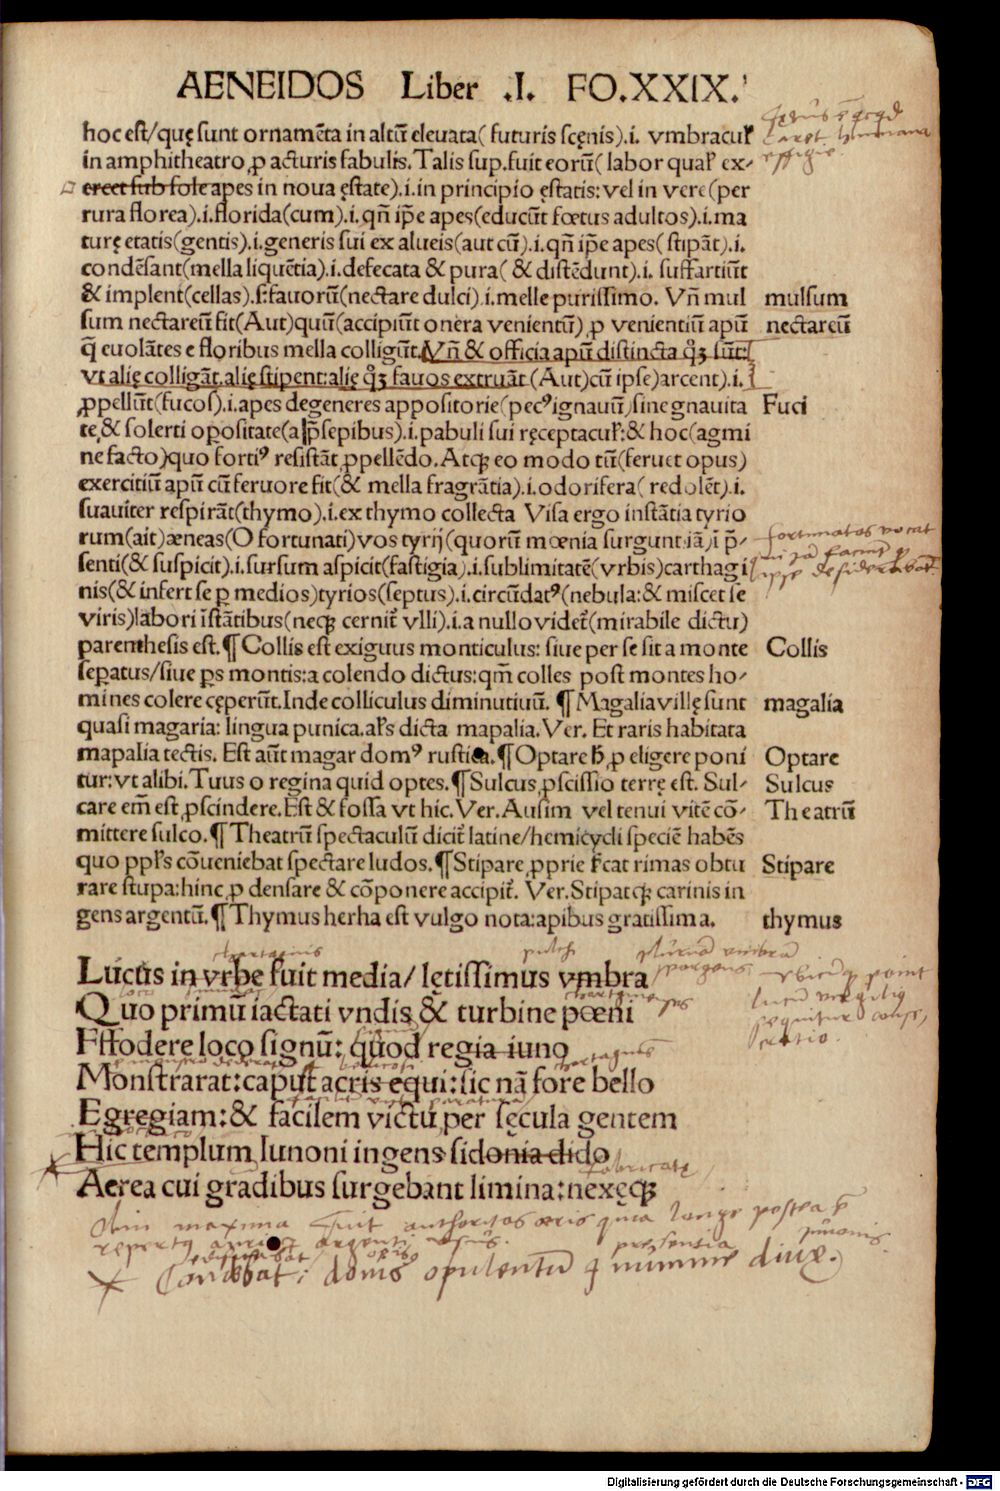 AENEIDOS Liber .I. FO.XXIX.
hoc est/quę sunt ornamēta in altū eleuata( futuris scęnis).i. vmbracuł
in amphitheatro ꝓ acturis fabulis. Talis sup. fuit eorū( labor qual' ex-
ercet sub sole apes in noua ęstate).i.in principio ęstatis: vel in vere(per
rura florea).i.florida(cum).i.qn̄ ip̄e apes(educūt fœtus adultos).i.ma
turę etatis(gentis).i.generis sui ex alueis(aut cū).i.qn̄ ip̄e apes( stipāt).i.
condēsant(mella liquētia).i.defecata & pura( & distēdunt).i. suffartiūt
& implent(cellas).s:fauorū(nectare dulci).i.melle purissimo. Vn̄ mul
mulsum
sum nectareū fit(Aut)quū(accipiūt onera venientū) ꝓ venientiū apū
nectareū
q̄ euolātes e floribus mella colligūt. Vn̄ & officia apū distincta qꝫ sūt:
vt alię colligāt.alię stipent:alię qꝫ fauos extruāt (Aut)cū ipse)arcent).i.
ꝓpellūt(fucos).i.apes degeneres appositorie(pecꝰignauū)sine gnauita
Fuci
te,& solerti opositate(a p̄sepibus).i.pabuli sui ręceptacuł:& hoc(agmi
ne facto)quo fortiꝰ resistāt ꝓpellēdo. Atqꝫ eo modo tū(feruet opus)
exercitiū apū cū feruore fit(& mella fragrātia).i.odorifera( redolēt).i.
suauiter respirāt(thymo).i.ex thymo collecta Visa ergo instātia tyrio
rum(ait)æneas(O fortunati)vos tyrij(quorū mœnia surgunt iā)i p̄-
fortunatos vocat
senti(& suspicit).i.sursum aspicit(fastigia).i.sublimitatē(vrbis)carthagi
ipse desiderabat
nis(& infert se ꝑ medios)tyrios(septus).i.circūdatꝰ(nebula:& miscet se
viris)labori īstātibus(neqꝫ cernit̄ vlli).i.a nullo videt̄(mirabile dictu)
parenthesis est.¶Collis est exiguus monticulus: siue per se sit a monte
Collis
seꝑatus/siue ꝑs montis:a colendo dictus:qm̄ colles post montes ho-
mines colere cęperūt.Inde colliculus diminutiuū. ¶Magalia villę sunt
magalia
quasi magaria: lingua punica.al's dicta mapalia. Ver. Et raris habitata
mapalia tectis. Est aūt magar domꝰ rustica.¶Optare ħ ꝓ eligere poni
Optare
tur:vt alibi. Tuus o regina quid optes.¶Sulcus ꝓscissio terrę est. Sul-
Sulcus
care em̄ est ꝓscindere. Est & fossa vt hic. Ver. Ausim vel tenui vitē cō-
Theatrū
mittere sulco.¶Theatrū spectaculū dicit̄ latine/hemicycli speciē habēs
quo ppl's cōueniebat spectare ludos.¶Stipare ꝓprie ł'cat rimas obtu
Stipare
rare stupa:hinc ꝓ densare & cōponere accipit̄. Ver. Stipatqꝫ carinis in
gens argentū.¶Thymus herha est vulgo nota:apibus gratissima.
thymus
Lucus in vrbe fuit media/ lętissimus vmbra
Quo primū iactati vndis & turbine pœni
Effodere loco signū: quod regia iuno
Monstrarat:caput acris equi:sic nā fore bello
Egregiam:& facilem victu per sęcula gentem
Hic templum Iunoni ingens sidonia dido
fabricatę
Aerea cui gradibus surgebant limina:nexęqꝫ
olim maxima fuit authoritas æris quia longe postea
argenti usus.
praesentia
iunonis
Condebat: donis opulentū & numine diuæ.
Digitalisierung gefördert durch die Deutsche Forschungsgemeinschaft - DFG